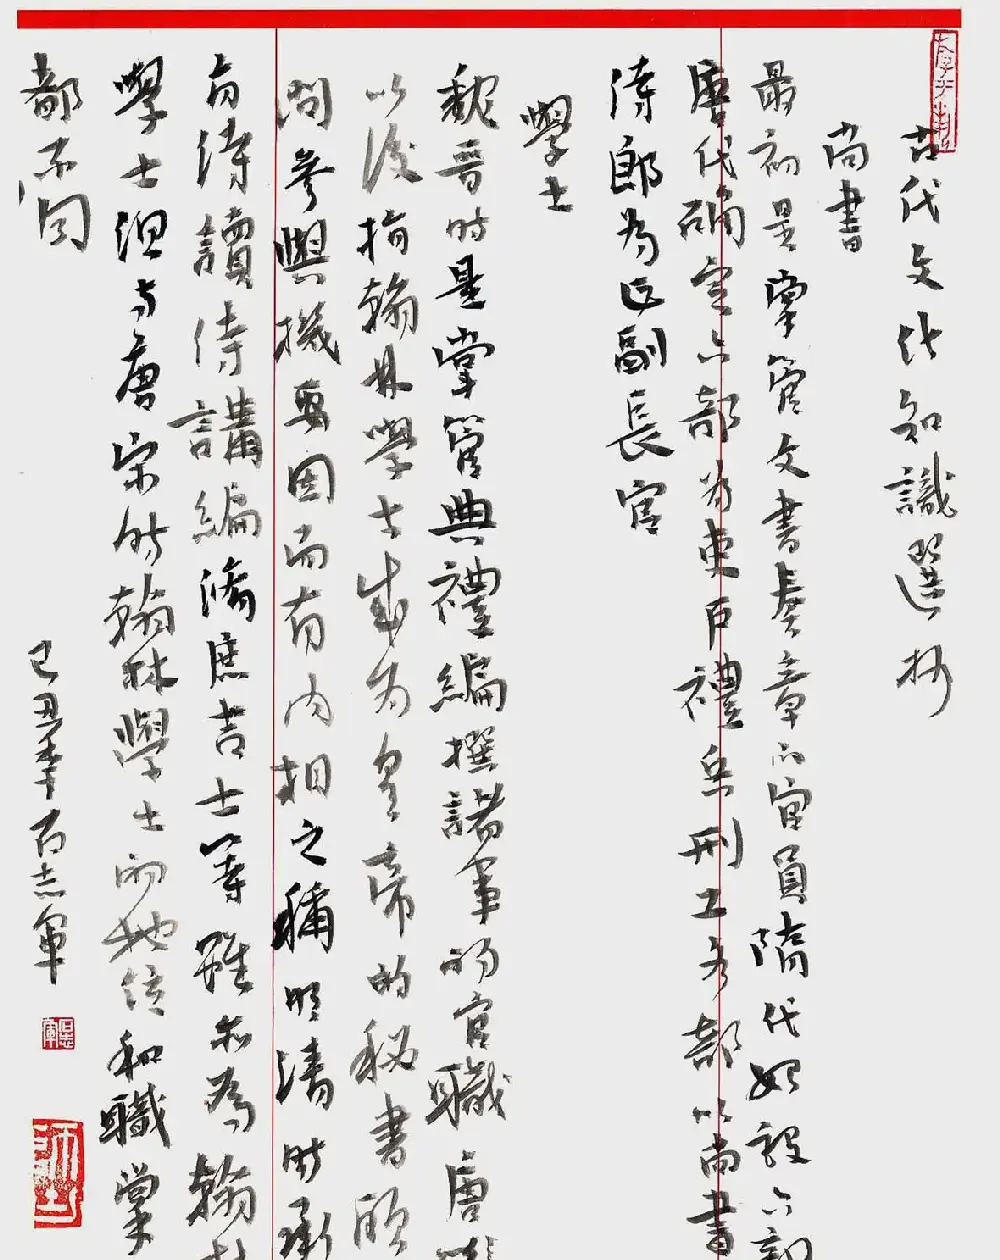 古代文化知識選抄
尚書
最初是掌管文書奏章的官員隋代始設六部
唐代確定六部為吏戶禮兵刑工各部以尚書
侍郎為正副長官
學士
魏晉時是掌管典禮編撰諸事的官職唐
以後指翰林學士成為皇帝的秘書顧
問參與機要因而有內相之稱明清時承
有侍讀侍講編修庶吉士等雖亦為翰林
學士但與唐宋時翰林學士的地位和職掌
都不同
己丑年 志軍